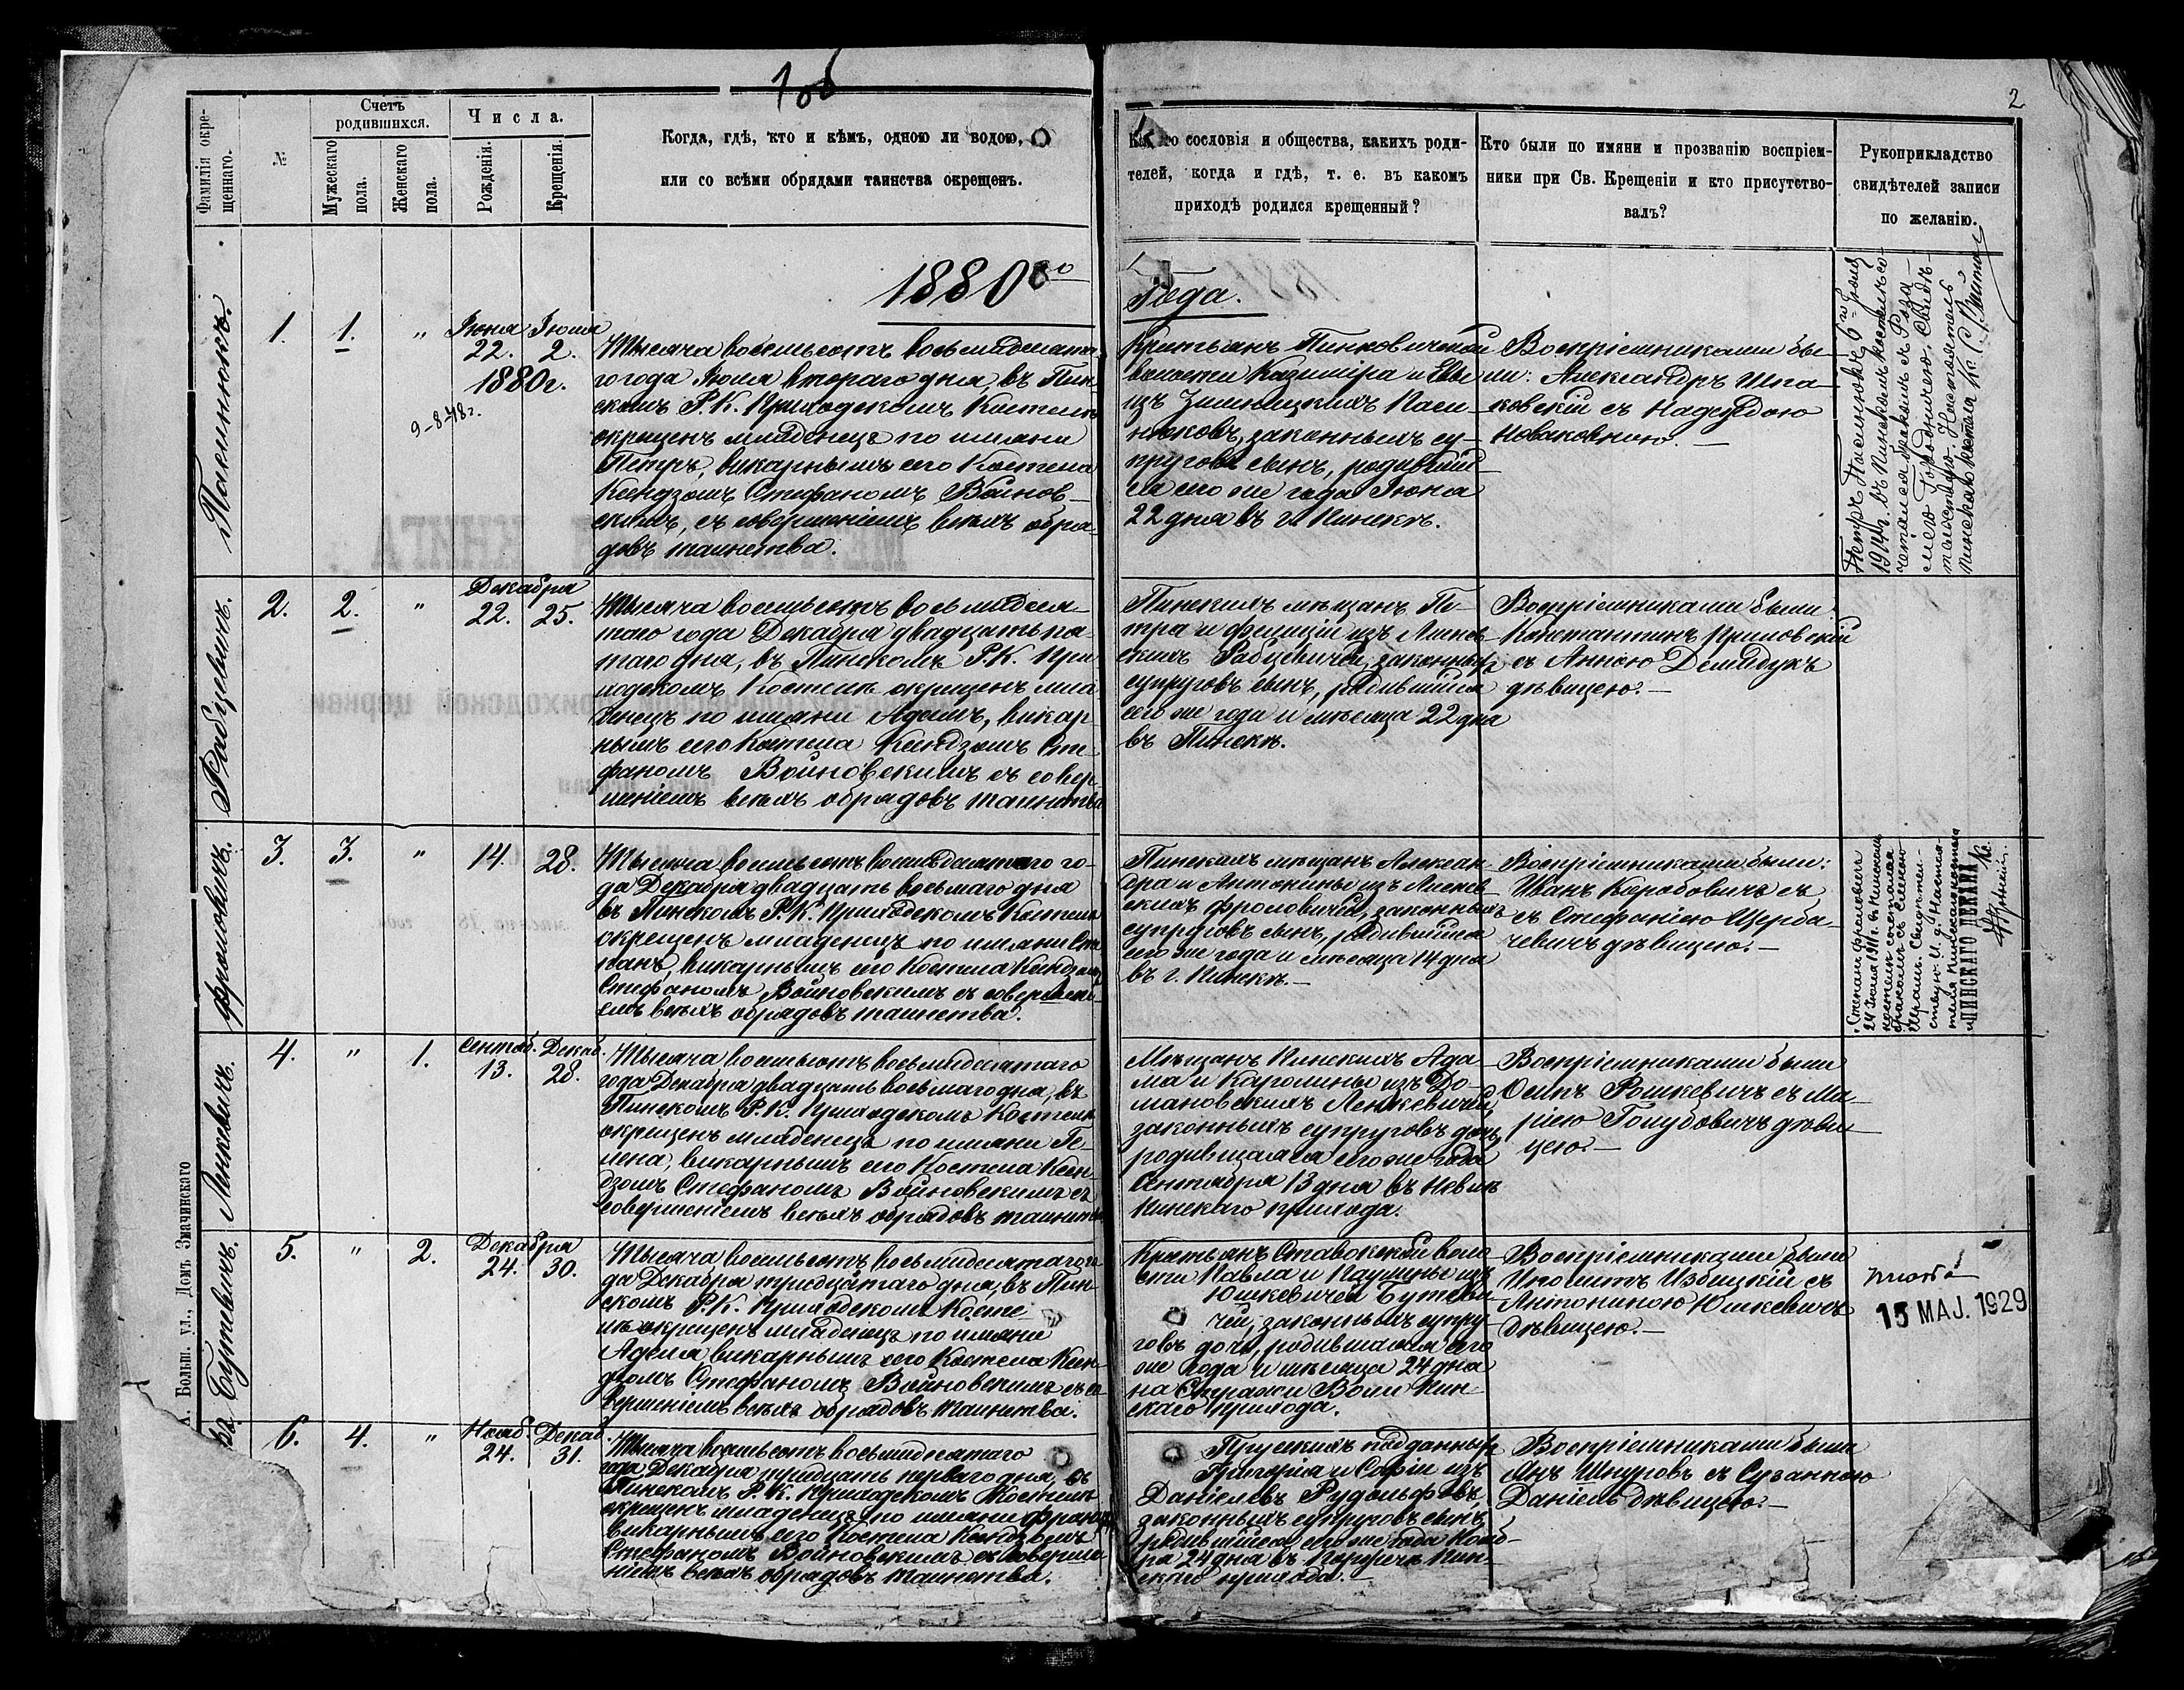 1об
2
Фамилія окре-
щеннаго.
№
Счетъ
родившихся.
Мужескаго
пола.
Женскаго
пола.
Числа.
Рожденія.
Крещенія.
Когда, гдѣ, кто и кѣмъ, одною ли водою,
или со всѣми обрядами таинства окрещенъ.
сословія и общества, какихъ роди-
телей, когда и гдѣ, т. е. въ какомъ
приходѣ родился крещенный?
Кто были по имяни и прозванію воспріем-
ники при Св. Крещеніи и кто присутство-
валъ?
Рукоприкладство
свидѣтелей записи
по желанію.
1880го
Года.
Пасенюкъ.
1.
1.
"
Іюня Іюля
22. 2.
1880г.
9-8-48г.
Тысяча восемьсотъ восьмидесята-
го года Іюля втораго дня, въ Пин-
скомъ Р. К. Приходскомъ Костелѣ
окрещенъ младенецъ по имяни
Петръ, викарнымъ сего Костела
Ксендзомъ Стефаномъ Войнов-
скимъ, съ совершеніемъ всѣхъ обря-
довъ таинства.
Крестьянъ Пинковичской
волости Казиміра и Евы
изъ Пасе-
нюковъ, законныхъ су-
пруговъ сынъ, родившій-
ся сего же года Іюня
22 дня въ г. Пинскѣ.
Воспріемниками бы-
ли: Александръ Шпа-
ковскій съ Надеждою
Новаковною.
Петръ Пасенюкъ 6го
1914г. въ Пинскомъ костелѣ со-
четался бракомъ съ Роза-
ліею свидѣ-
тельствую. Настоятель
Пинскаго костела Кс.
Рабцевичъ.
2.
2.
"
Декабря
22. 25.
Тысяча восемьсотъ восьмидеся-
таго года Декабря двадцать пя-
таго дня, въ Пинскомъ Р. К. При-
ходскомъ Костелѣ окрещенъ мла-
денецъ по имяни Адамъ, викар-
нымъ сего Костела Ксендзомъ Сте-
фаномъ Войновскимъ съ совер-
шеніемъ всѣхъ обрядовъ таинства
Пинскихъ мѣщанъ Пе-
тра и Фелиціи изъ Линев-
скихъ Рабцевичей, законныхъ
супруговъ сынъ, родившійся
сего же года и мѣсяца 22 дня
въ Пинскѣ.
Воспріемниками были:
Константинъ
съ Анною Демидукъ
дѣвицею.
Фроловичъ.
3.
3.
"
14.
28.
Тысяча восемьсотъ восьмидесятаго го-
да Декабря двадцать восьмаго дня
въ Пинскомъ Р. К. Приходскомъ Костелѣ
окрещенъ младенецъ по имяни Сте-
панъ, викарнымъ сего Костела Ксендзомъ
Стефаномъ Войновскимъ съ совершені-
емъ всѣхъ обрядовъ таинства.
Пинскихъ мѣщанъ Алексан-
дра и Антонины изъ Линев-
скихъ Фроловичей, законныхъ
супруговъ сынъ, родившійся
сего же года и мѣсяца 14 дня
въ г. Пинскѣ.
Воспріемниками были:
Иванъ Коробовичъ съ
съ Стефаніею Щерба-
чевичъ дѣвицею.
Степанъ Фроловичъ
24 Іюля 1911г. въ Пинскомъ
костелѣ сочетался
бракомъ съ Еленою
Свидѣтель-
ствую. И. д. Настоя-
теля Пинскаго костела
ПИНСКАГО ДЕКАНА Кс.
Линкевичъ.
4.
"
1.
Сентяб. Декаб.
13. 28.
Тысяча восемьсотъ восьмидесятаго
года Декабря двадцать восьмаго дня, въ
Пинскомъ Р. К. Приходскомъ Костелѣ
окрещенъ младенецъ по имяни Ге-
лена, викарнымъ сего Костела Ксен-
дзомъ Стефаномъ Войновскимъ съ
совершеніемъ всѣхъ обрядовъ таинства
Мѣщанъ Пинскихъ Ада-
ма и Каролины изъ До-
мановскихъ Ленкевичей,
законныхъ супруговъ дочь,
родившаяся сего же года
Сентября 13 дня въ
Пинскаго прихода.
Воспріемниками были
Осипъ Рошкевичъ съ Ма-
ріею Голубовичъ дѣви-
цею.
Бутевичъ.
5.
"
2.
Декабря
24. 30.
Тысяча восемьсотъ восьмидесятаго го-
да Декабря тридцатаго дня, въ Пин-
скомъ Р. К. Приходскомъ Косте-
лѣ окрещенъ младенецъ по имяни
Аделя викарнымъ сего Костела Ксен-
дзомъ Стефаномъ Войновскимъ съ со-
вершеніемъ всѣхъ обрядовъ таинства.
Крестьянъ Ставокской воло-
сти Павла и Паулины изъ
Юшкевичей Бутеви-
чей, законныхъ супру-
говъ дочь, родившаяся сего
же года и мѣсяца 24 дня
на Стражи Воли Пин-
скаго прихода.
Воспріемниками были
Ипполитъ Избицкій съ
Антониною Юшкевичъ
дѣвицею.
15 MAJ. 1929
6.
4.
"
Нояб. Декаб.
24. 31.
Тысяча восемьсотъ восьмидесятаго
года Декабря тридцать перваго дня, въ
Пинскомъ Р. К. Приходскомъ Костелѣ
окрещенъ младенецъ по имяни
викарнымъ сего Костела Ксендзомъ
Стефаномъ Войновскимъ съ соверше-
ніемъ всѣхъ обрядовъ таинства.
Прусскихъ подданныхъ
Григорія и Софіи изъ
Даніелевъ Рудольфовъ,
законныхъ супруговъ сынъ,
родившійся сего же года Нояб-
ря 24 дня въ Пин-
скаго прихода.
Воспріемниками были
Янъ Шнуровъ съ Сузанною
Даніель дѣвицею.
А. Больш. ул., Домъ Значинскаго